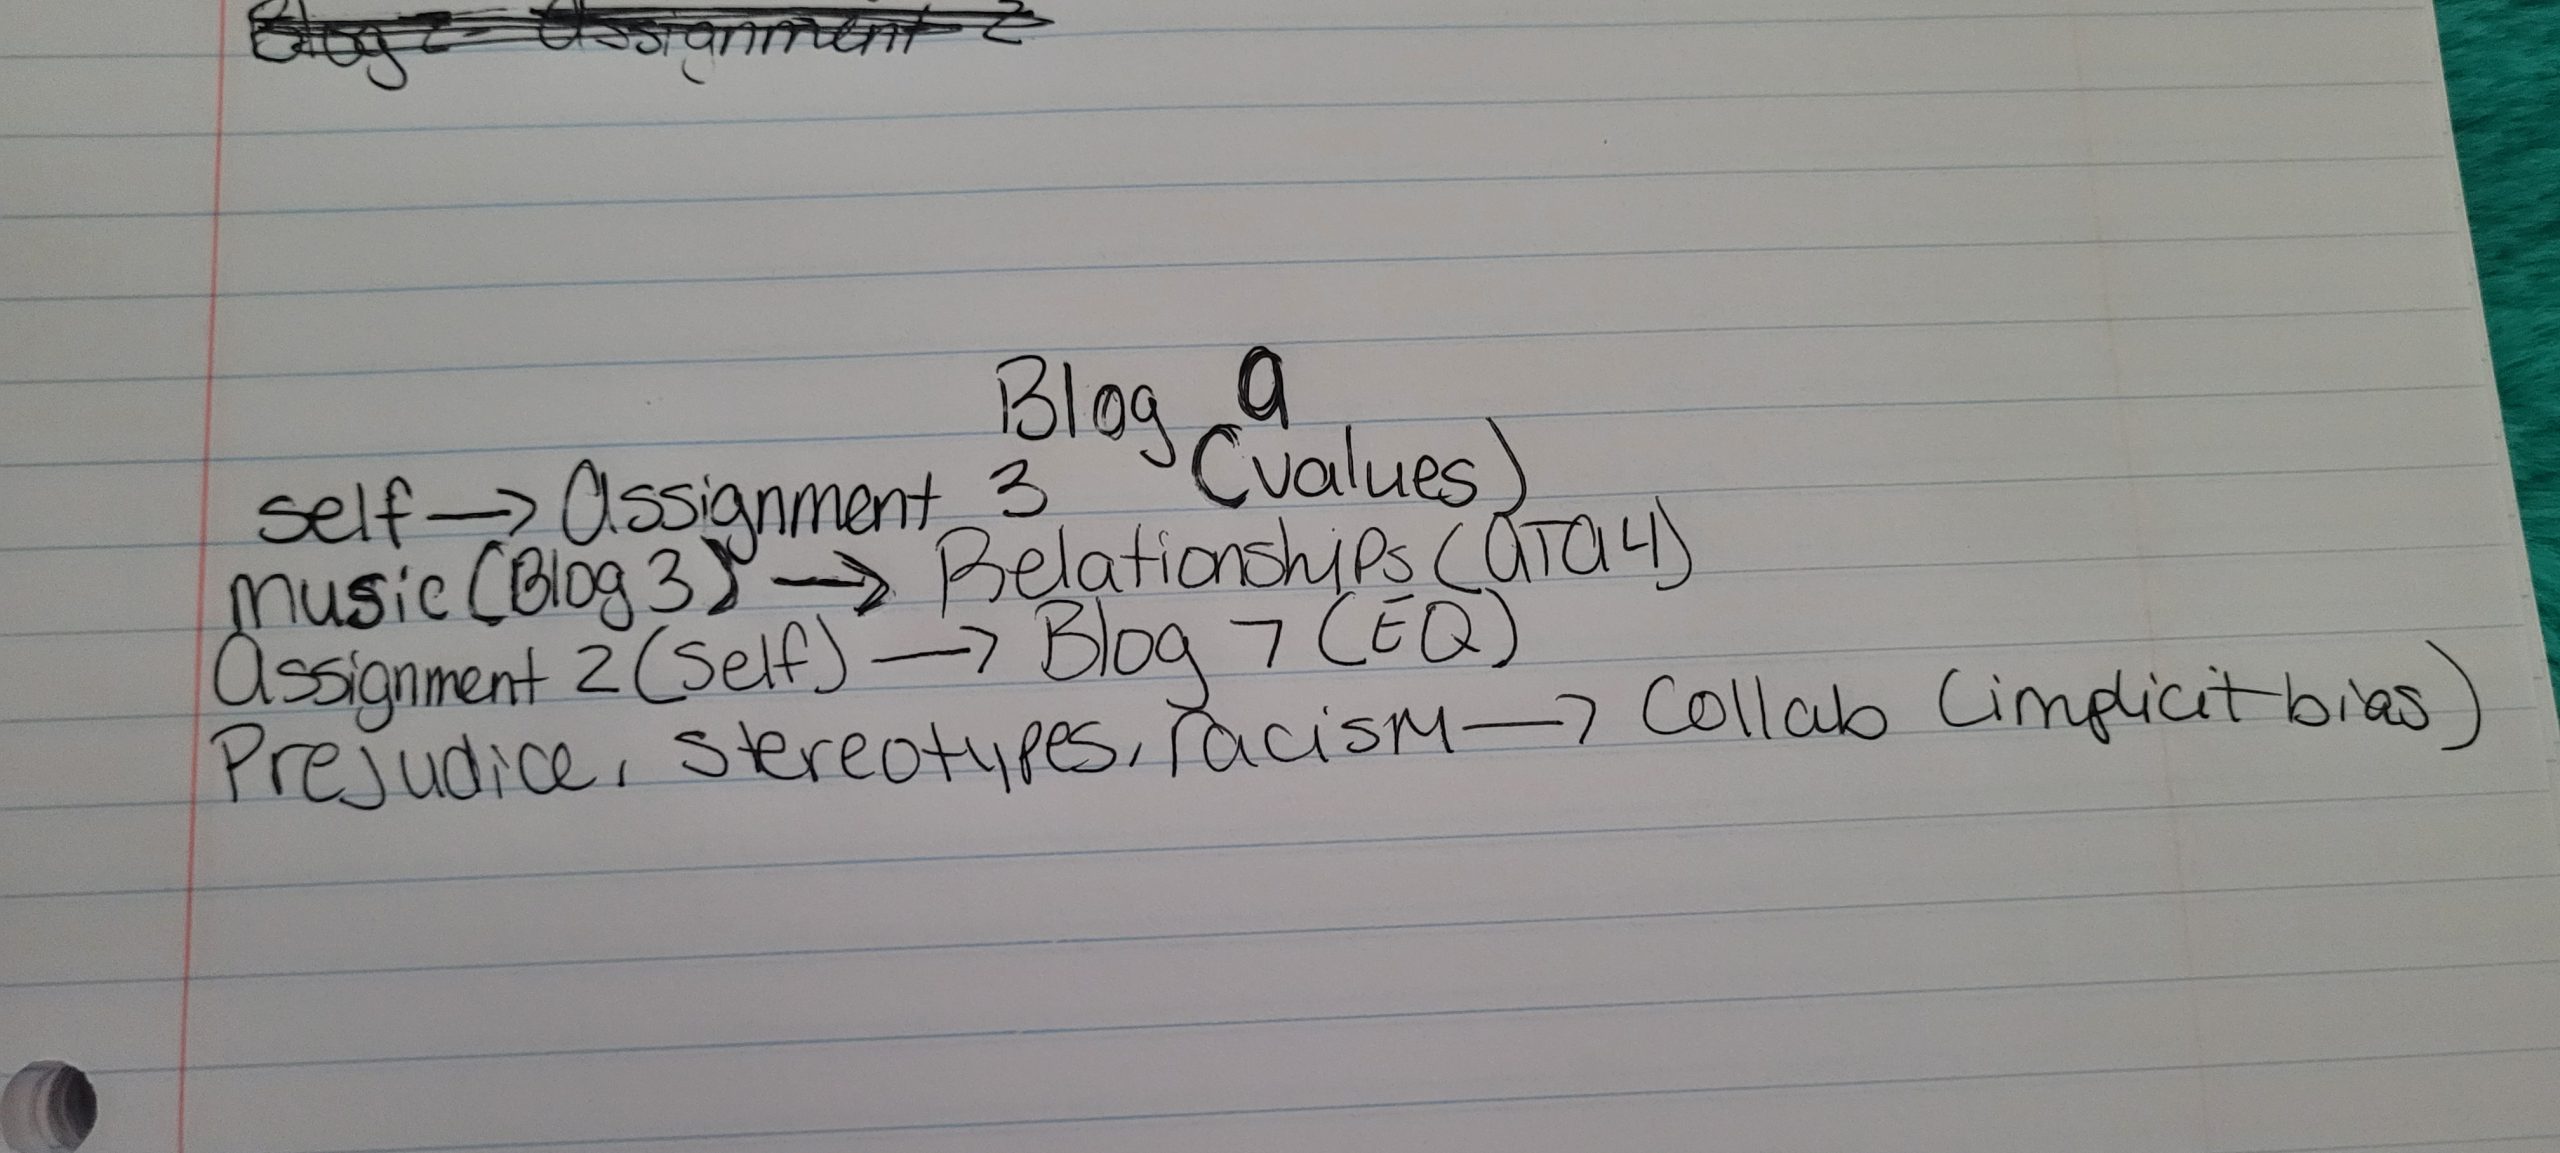 Blog 2 - Assignment 2
Blog 9
self → Assignment 3 (values)
music (Blog 3) → Relationships (ATA4)
Assignment 2 (self) → Blog 7 (EQ)
Prejudice, stereotypes, racism → Collab (implicit bias)